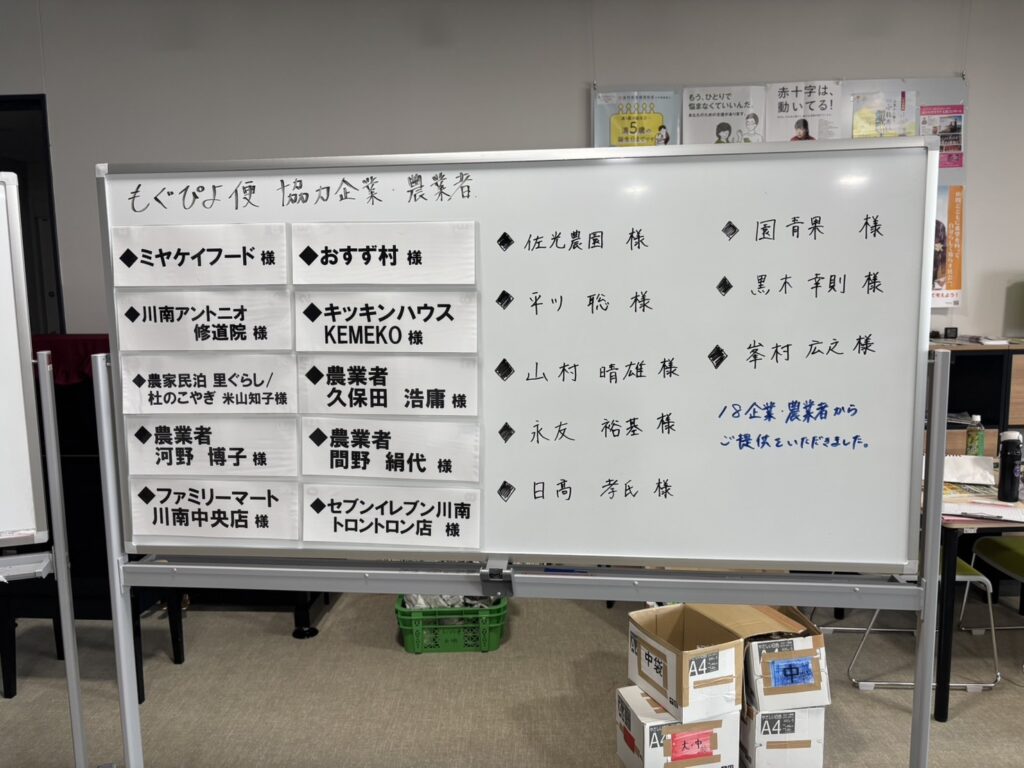 もぐぴよ便 協力企業・農業者
◆ミヤケイフード 様
◆おすず村 様
◆川南アントニオ
修道院 様
◆キッキンハウス
KEMEKO 様
◆農家民泊 里ぐらし/
杜のこやぎ 米山知子様
◆農業者
久保田 浩庸 様
◆農業者
河野 博子 様
◆農業者
間野 絹代 様
◆ファミリーマート
川南中央店 様
◆セブンイレブン川南
トロントロン店 様
◆佐光農園 様
◆平川 聡 様
◆山村 晴雄 様
◆永友 裕基 様
◆日髙 孝氏 様
◆園青果 様
◆黒木 幸則 様
◆峯村 広之 様
18企業・農業者から
ご提供をいただきました。
もう、ひとりで
悩まなくていいんだ。
赤十字は、
動いてる!
満5歳の
中袋
A4
中
A4
A4
大・中
A4